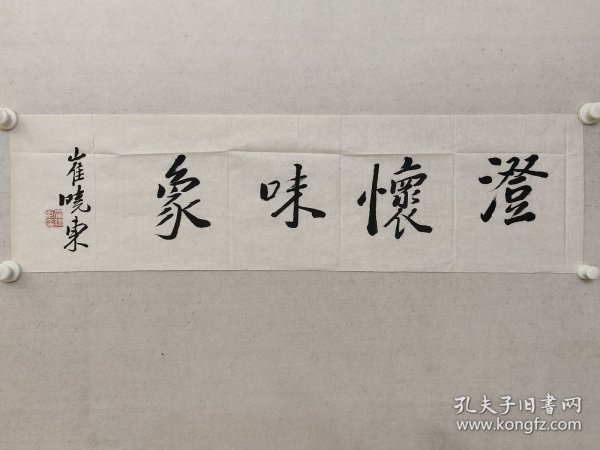 澄懷味象
崔曉東
孔夫子旧書网
www.kongfz.com